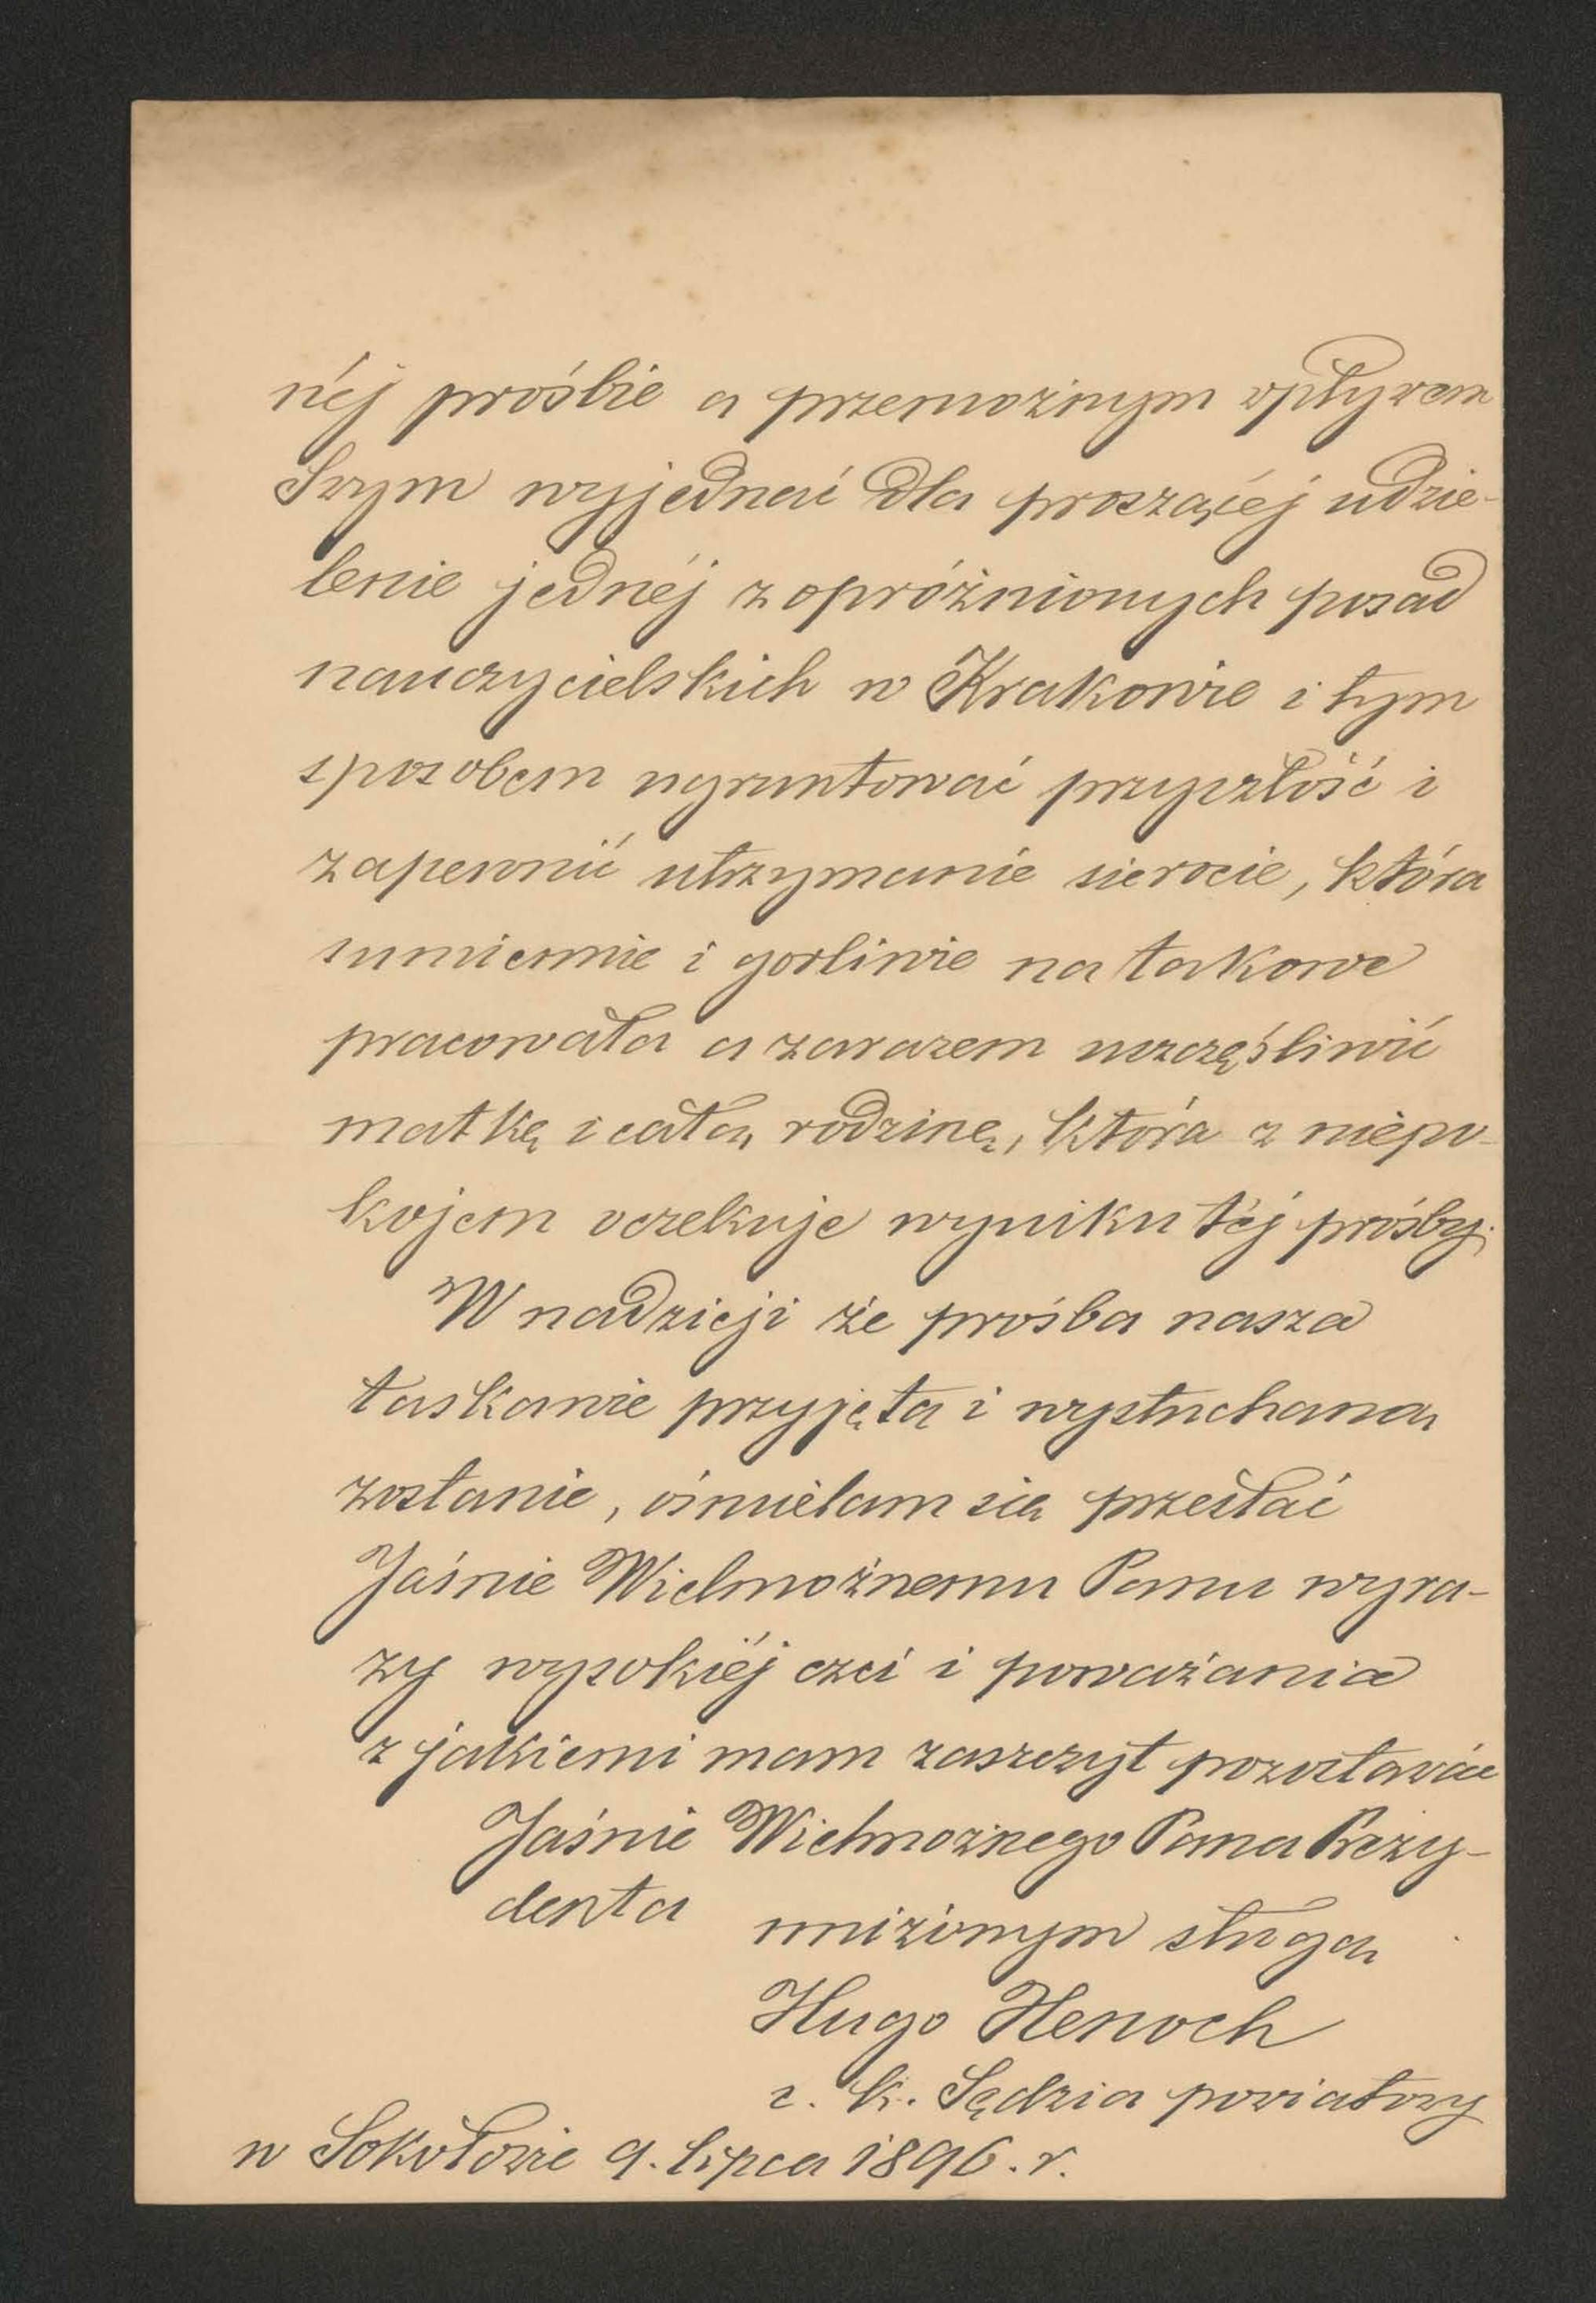 néj prośbie a przemożnym wpływem
Swym wyjednać dla proszącéj udzie-
lenie jednéj z opróżnionych posad
nauczycielskich w Krakowie i tym
sposobem ugruntować przyszłość i
zapewnić utrzymanie sierocie, która
sumiennie i gorliwie na takowe
pracowała a zarazem uszczęśliwić
matkę i całą rodzinę, która z niepo-
kojem oczekuje wyniku téj prośby.
W nadzieji że prośba nasza
łaskawie przyjętą i wysłuchaną
zostanie, ośmielam się przesłać
Jaśnie Wielmożnemu Panu wyra-
zy wysokiéj czci i poważania
z jakiemi mam zaszczyt pozostawać
Jaśnie Wielmożnego Pana Prezy-
denta
uniżonym sługą
Hugo Henoch
c. k. Sędzia powiatowy
w Sokołowie 9. lipca 1896. r.